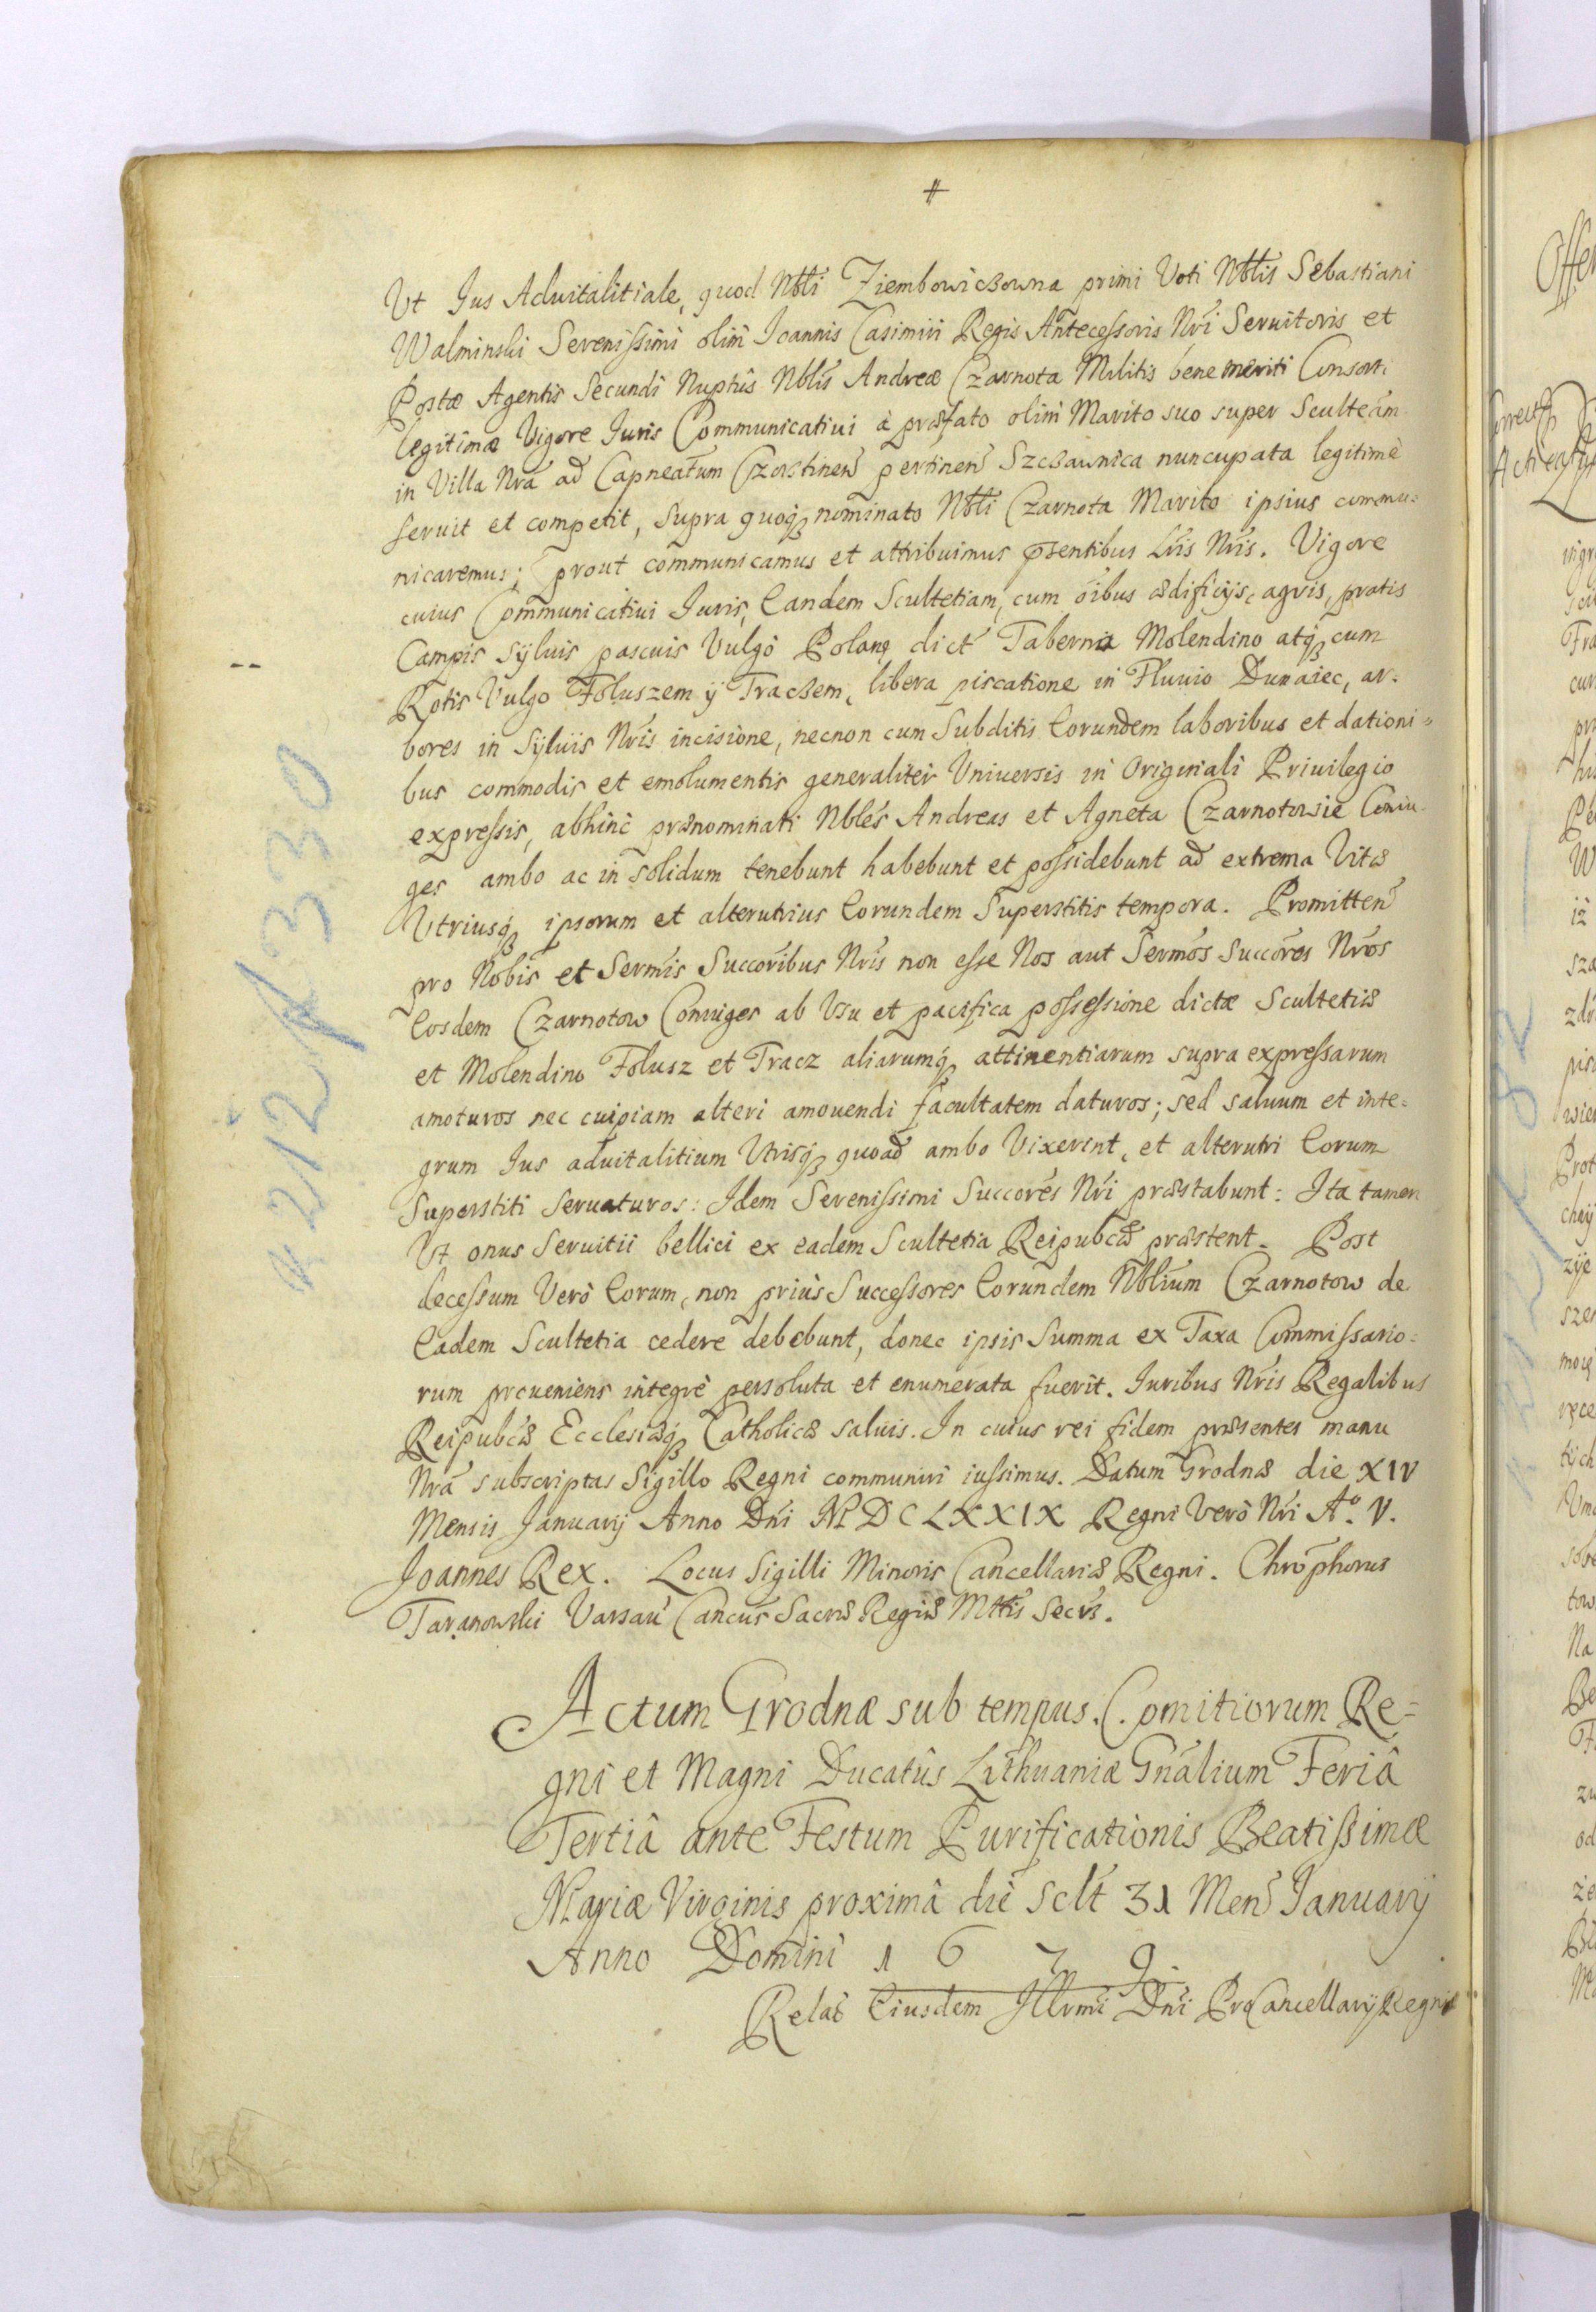 Ut Jus Aduitalitiale, quod Nbli Ziembowiczowna primi Voti Nblis Sebastiani
Walminski Serenissimi olim Joannis Casimiri Regis Antecessoris Nri Seruitoris et
Postæ Agentis Secundi Nuptûs Nblis Andreæ Czarnota Militis bene meriti Consorti
legitimæ Vigore Juris Communicatiui à præfato olim Marito suo super Sculteam
in Villa Nra ad Capneatum Czorstinen pertinen Szczawnica nuncupata legitimè
seruit et competit, supra quoq nominato Nbli Czarnota Marito ipsius commu=
nicaremus; prout communicamus et attribuimus psentibus Lris Nris. Vigore
cuius Communicatiui Juris, Eandem Scultetiam, cum oibus ædificijs, agris, pratis
Campis Syluis pascuis Vulgo Polany dict Taberna Molendino atq cum
Rotis Vulgo Foluszem y Traczem, libera piscatione in Fluuio Dunaiec, ar=
bores in Syluis Nris incisione, necnon cum Subditis Eorundem laboribus et dationi=
bus commodis et emolumentis generaliter Uniuersis in Originali Priuilegio
expressis, abhinc prænominati Nbles Andreas et Agneta Czarnotowie Coniu=
ges ambo ac in solidum tenebunt habebunt et possidebunt ad extrema Vitæ
Utriusq ipsorum et alterutrius Eorundem Superstitis tempora. Promitten
pro Nobis et Sermis Succoribus Nris non esse Nos aut Sermos Succores Nros
Eosdem Czarnotow Coniuges ab Usu et pacifica possessione dictæ Scultetiæ
et Molendino Folusz et Tracz aliarumq attinentiarum supra expressarum
amoturos nec cuipiam alteri amouendi facultatem daturos; sed saluum et inte=
grum Jus aduitalitium Utrisq quoad ambo Vixerint, et alterutri Eorum
Superstiti seruaturos: Idem Serenissimi Succores Nri præstabunt: Ita tamen
Ut onus Seruitii bellici ex eadem Scultetia Reipubcæ præstent. Post
decessum Verò Eorum, non prius Successores Eorundem Nblium Czarnotow de
Eadem Scultetia cedere debebunt, donec ipsis Summa ex Taxa Commissario=
rum proueniens integrè persoluta et enumerata fuerit. Juribus Nris Regalibus
Reipubcæ Ecclesiæq Catholicæ saluis. In cuius rei fidem præsentes manu
Nra subscriptas Sigillo Regni communiri iussimus. Datum Grodnæ die XIV
Mensis Januarij Anno Dni MDCLXXIX Regni Verò Nri Aº. V.
Joannes Rex. Locus Sigilli Minoris Cancellariæ Regni. Chrophorus
Taranowski Varsau Cancus Sacræ Regiæ Mttis Secrs.
Actum Grodnæ sub tempus Comitiorum Re=
gni et Magni Ducatûs Lithuaniæ Gnalium Feriâ
Tertiâ ante Festum Purificationis Beatissimæ
Mariæ Virginis proximâ die sclt 31 Men Januarij
Anno Domini 1679.
Relaõ Eiusdem Illrmi Dni ProCancellarij Regni